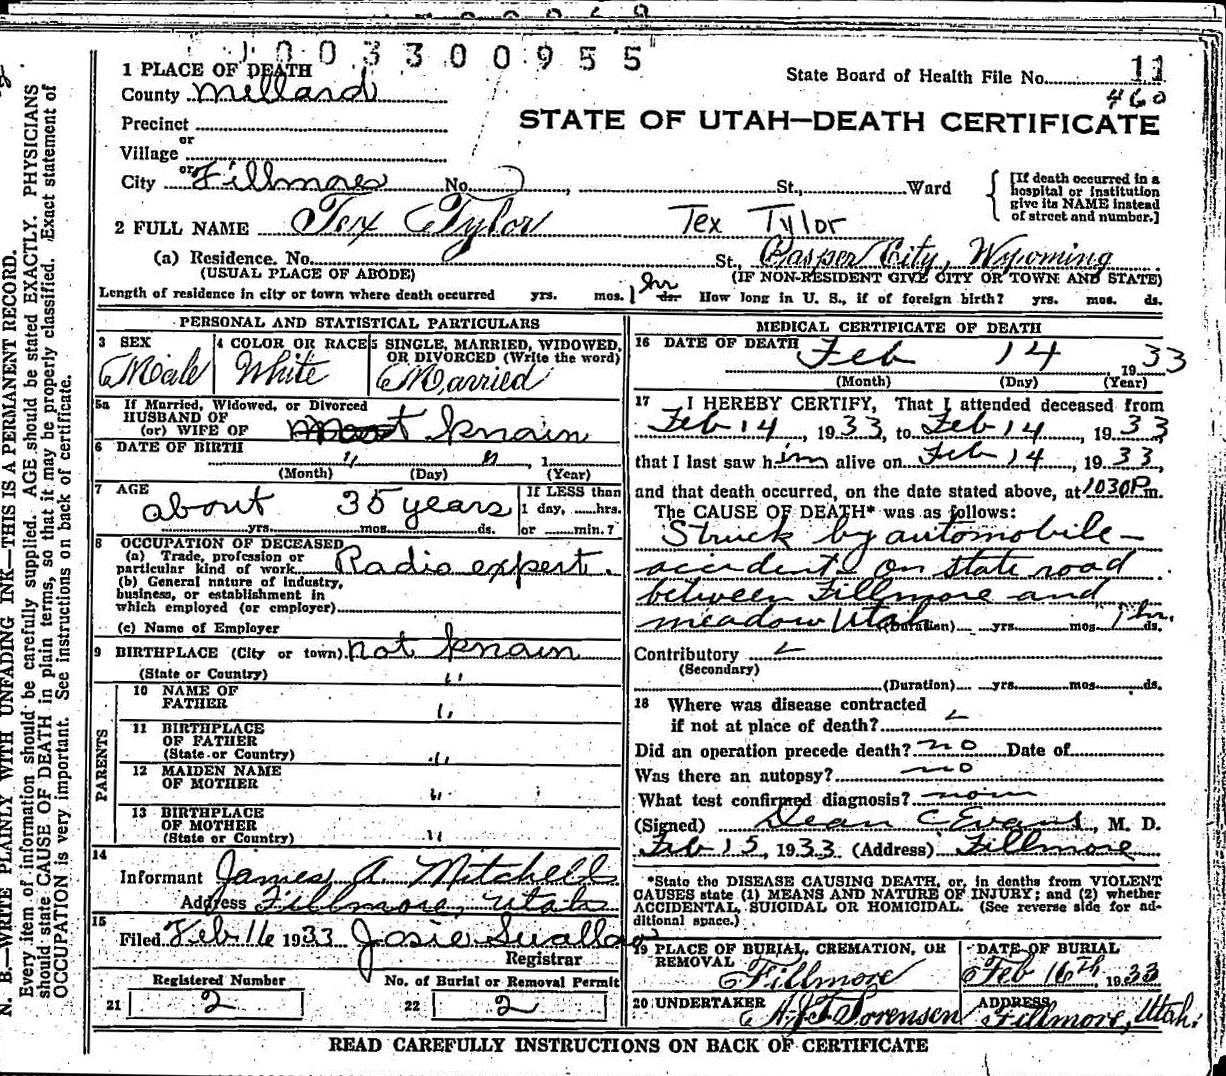 1003300955
1 PLACE OF DEATH
County Millard
State Board of Health File No. 11
460
STATE OF UTAH—DEATH CERTIFICATE
Precinct
or
Village
or
City Fillmore No. St., Ward
[If death occurred in a hospital or institution give its NAME instead of street and number.]
2 FULL NAME Tex Tylor Tex Tylor
(a) Residence. No. St., Casper City, Wyoming
(USUAL PLACE OF ABODE) (IF NON-RESIDENT GIVE CITY OR TOWN AND STATE)
Length of residence in city or town where death occurred yrs. mos. 1 hr ds. How long in U. S., if of foreign birth? yrs. mos. ds.
PERSONAL AND STATISTICAL PARTICULARS
3 SEX Male
4 COLOR OR RACE White
5 SINGLE, MARRIED, WIDOWED, OR DIVORCED (Write the word) Married
5a If Married, Widowed, or Divorced
HUSBAND OF
(or) WIFE OF not knain
6 DATE OF BIRTH " " 1
(Month) (Day) (Year)
7 AGE about 35 years
yrs. mos. ds.
If LESS than 1 day, hrs. or min.?
8 OCCUPATION OF DECEASED
(a) Trade, profession or particular kind of work Radio expert.
(b) General nature of industry, business, or establishment in which employed (or employer)
(c) Name of Employer
9 BIRTHPLACE (City or town) not knain
(State or Country) "
PARENTS
10 NAME OF FATHER "
11 BIRTHPLACE OF FATHER (State or Country) "
12 MAIDEN NAME OF MOTHER "
13 BIRTHPLACE OF MOTHER (State or Country) "
14
Informant James A. Mitchell
Address Fillmore, Utah
15
Filed Feb 16 1933 Josie Swallow
Registrar
Registered Number
21 2
No. of Burial or Removal Permit
22 2
MEDICAL CERTIFICATE OF DEATH
16 DATE OF DEATH Feb 14 1933
(Month) (Day) (Year)
17 I HEREBY CERTIFY, That I attended deceased from
Feb 14, 1933, to Feb 14, 1933
that I last saw him alive on Feb 14, 1933,
and that death occurred, on the date stated above, at 1030P m.
The CAUSE OF DEATH* was as follows:
Struck by automobile—
accident on state road
between Fillmore and
meadow Utah (Duration) yrs. mos. 1 hr. ds.
Contributory
(Secondary)
(Duration) yrs. mos. ds.
18 Where was disease contracted
if not at place of death?
Did an operation precede death? no Date of
Was there an autopsy? no
What test confirmed diagnosis? none
(Signed) Dean C Evans, M. D.
Feb 15, 1933 (Address) Fillmore
*State the DISEASE CAUSING DEATH, or, in deaths from VIOLENT
CAUSES state (1) MEANS AND NATURE OF INJURY; and (2) whether
ACCIDENTAL, SUICIDAL OR HOMICIDAL. (See reverse side for ad-
ditional space.)
19 PLACE OF BURIAL, CREMATION, OR REMOVAL Fillmore
DATE OF BURIAL Feb 16th, 1933
20 UNDERTAKER A.J.T. Sorensen
ADDRESS Fillmore, Utah.
READ CAREFULLY INSTRUCTIONS ON BACK OF CERTIFICATE
N. B.—WRITE PLAINLY WITH UNFADING INK—THIS IS A PERMANENT RECORD.
Every item of information should be carefully supplied. AGE should be stated EXACTLY. PHYSICIANS
should state CAUSE OF DEATH in plain terms, so that it may be properly classified. Exact statement of
OCCUPATION is very important. See instructions on back of certificate.